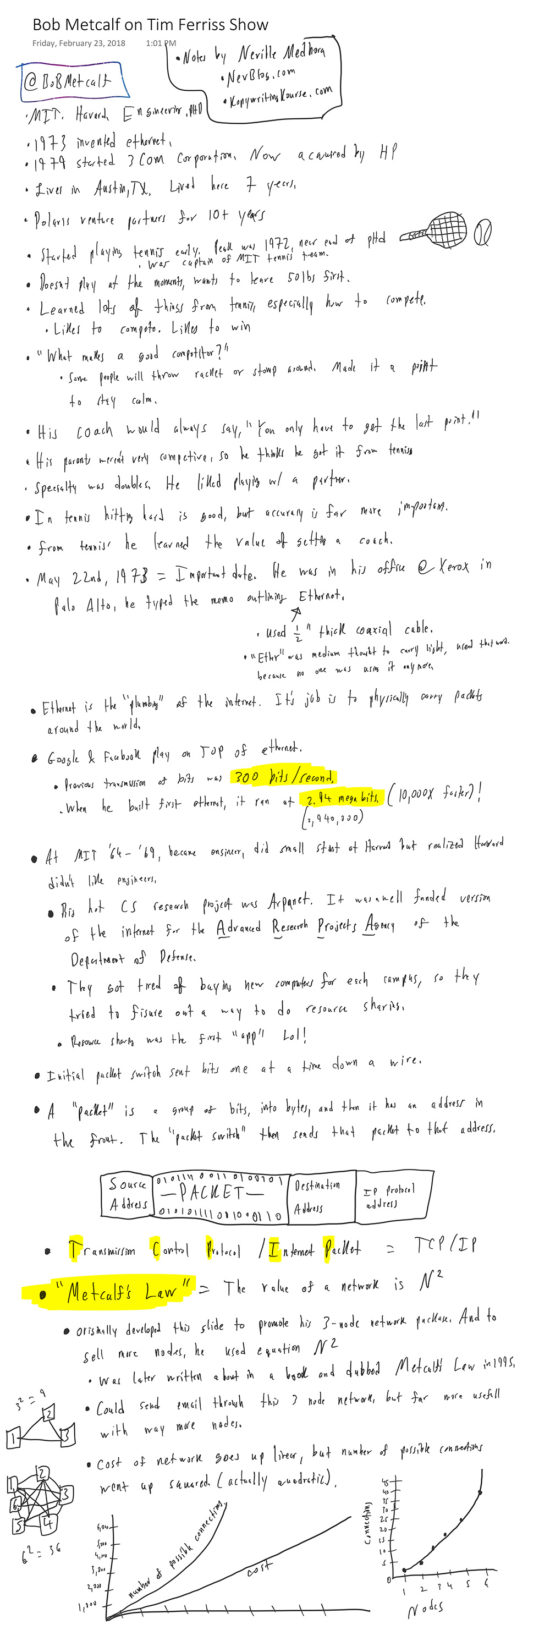 Bob Metcalf on Tim Ferriss Show
Friday, February 23, 2018 1:01 PM
• Notes by Neville Medhora
• NevBlog.com
• KopywritingKourse.com
@BoBMetcalf
• MIT. Havard, Engineering, PHD
• 1973 invented ethernet.
• 1979 started 3Com Corporation. Now acquired by HP
• Lives in Austin, TX. Lived here 7 years.
• Polaris venture partners for 10+ years
• Started playing tennis early. Peak was 1972, near end of pHd
• was captain of MIT tennis team.
• Doesnt play at the moments, wants to leave 50lbs first.
• Learned lots of things from tennis, especially how to compete.
• Likes to compete. Likes to win
• "What makes a good competitor?"
• Some people will throw racket or stomp around. Made it a point
to stay calm.
• His coach would always say, "You only have to get the last point."
• His parents weren't very competive, so he thinks he got it from tennis
• Specialty was doubles. He liked playing w/ a partner.
• In tennis hitting hard is good, but accuracy is far more important.
• From tennis he learned the value of getting a coach.
• May 22nd, 1973 = Important date. He was in his office @ Xerox in
Palo Alto, he typed the memo outlining Ethernet.
• Used 1/2" thick coaxial cable.
• "Ethr" was medium thought to carry light, used that word
because no one was using it anymore.
• Ethernet is the "plumbing" of the internet. It's job is to physically carry packets
around the world.
• Google & Facebook play on TOP of ethernet.
• Previous transmission of bits was 300 bits/second.
• When he built first ethernet, it ran at 2.94 mega bits. (10,000X faster)!
(2,940,000)
• At MIT '64-'69, became engineer, did small stint at Harvard but realized Harvard
didn't like engineers.
• Big hot CS research project was Arpanet. It was a well funded version
of the internet for the Advanced Research Projects Agency of the
Department of Defense.
• They got tired of buying new computers for each campus, so they
tried to figure out a way to do resource sharing.
• Resource sharing was the first "app" Lol!
• Initial packet switch sent bits one at a time down a wire.
• A "packet" is a group of bits, into bytes, and then it has an address in
the front. The "packet switch" then sends that packet to that address.
Source
Address
—PACKET—
Destination
Address
IP protocol
address
• Transmission Control Protocol / Internet Packet = TCP/IP
• "Metcalf's Law" = The value of a network is N²
• Originally developed this slide to promote his 3-node network package. And to
sell more nodes, he used equation N²
• Was later written about in a book and dubbed Metcalf's Law in 1995.
• Could send email through this 3 node network, but far more usefull
with way more nodes.
• Cost of network goes up linear, but number of possible connections
went up squared (actually quadratic).
3² = 9
1 2 3
1 2 3 4 5 6
6² = 36
6,000
5,000
4,000
3,000
2,000
1,000
number of possible connections
cost
connections
45
40
35
30
25
20
15
10
5
0
1 2 3 4 5 6
Nodes